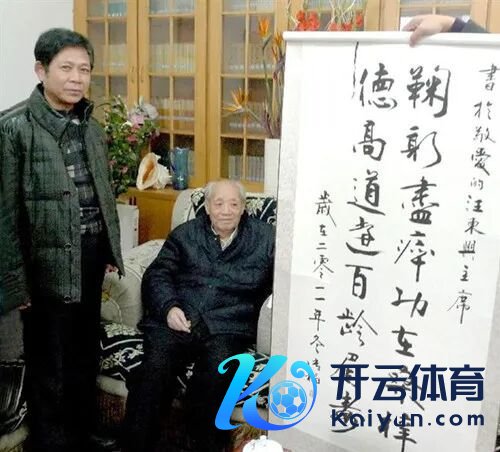 書於敬愛的汪東興主席
鞠躬盡瘁功在
德高道遠百齡
歲在二零一一年冬
开云体育
Kaiyun.com